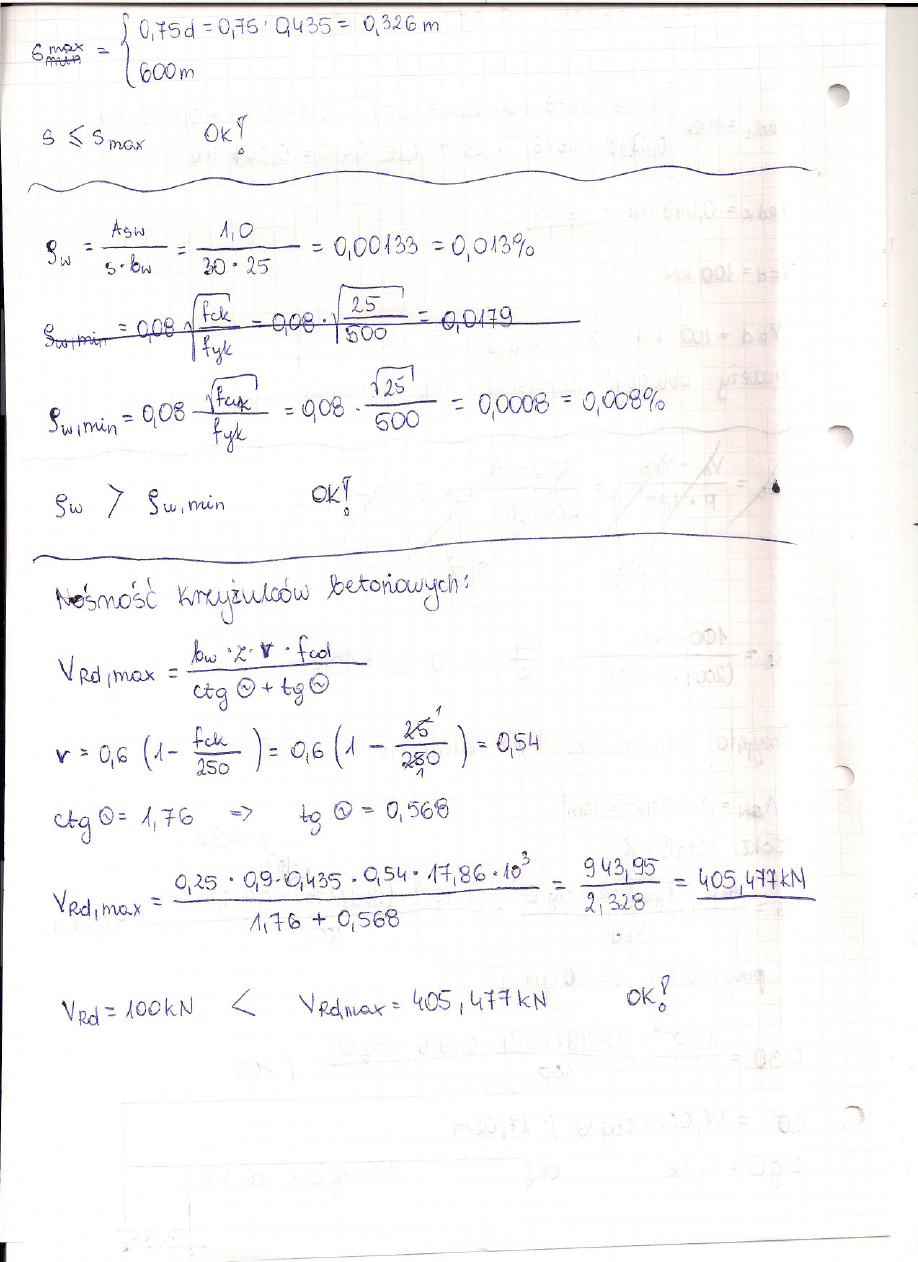 s max min = { 0,75d = 0,75 · 0,435 = 0,326 m
600m
s ≤ s max OK!
ρw = Asw / s·bw = 1,0 / 30 · 25 = 0,00133 = 0,013%
ρw,min = 0,08 √(fck / fyk) = 0,08 · √(25 / 500) = 0,0179
ρw,min = 0,08 √fck / fyk = 0,08 · √25 / 500 = 0,0008 = 0,008%
ρw > ρw,min OK!
Nośność krzyżulców betonowych:
VRd,max = bw · z · ν · fcd / ctg Θ + tg Θ
ν = 0,6 (1 - fck / 250) = 0,6 (1 - 25 1 / 250 1) = 0,54
ctg Θ = 1,76 => tg Θ = 0,568
VRd,max = 0,25 · 0,9 · 0,435 · 0,54 · 17,86 · 10³ / 1,76 + 0,568 = 943,95 / 2,328 = 405,477kN
VRd = 100kN < VRdmax = 405,477kN OK!